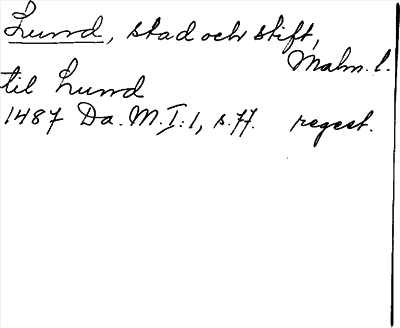 Lund, stad och stift,
Malm. l.
til Lund
1487 Da. M. I: 1, s. 77. regest.